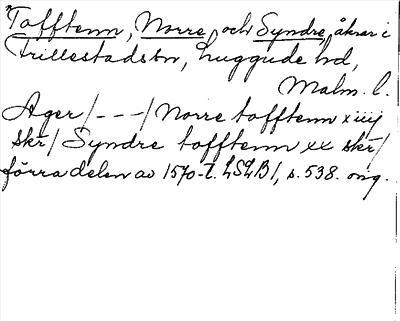 "Tofftenn, Norre och Syndre, åkrar i
Trillestads sn, Luggude hd,
Malm. l.
Ager/---/Norre tofftenn xiiij
skr/ Syndre tofftenn xx skr/
förra delen av 1570-t. LSLB I, s. 538. orig.